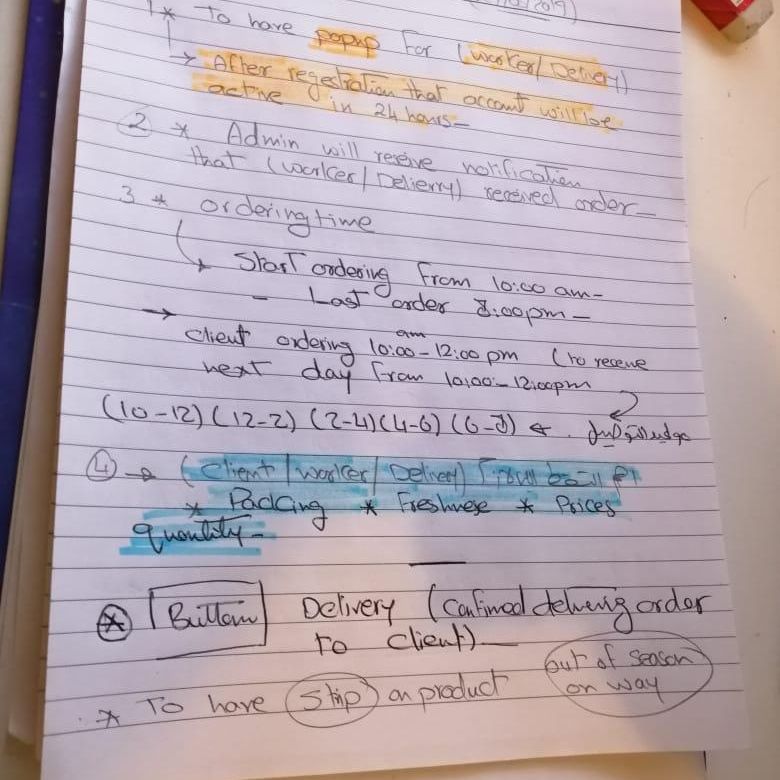 2019)
1 * To have popup For (worker/Delivery)
→ After regestration that account will be
active in 24 hours-
2 * Admin will reseive notification
that (worker/Delierry) received order-
3 * ordering time
Start ordering From 10:00 am-
- Last order 8:00pm-
→ client ordering 10:00 am - 12:00 pm (to receve
next day From 10:00 - 12:00pm
(10-12) (12-2) (2-4) (4-6) (6-8)
4 → (Client/worker/Delivery)
* Packing * Freshnese * Prices
quantity-
* Buttom Delivery (Confirmed delivering order
to client)-
* To have Strip on product out of season
on way